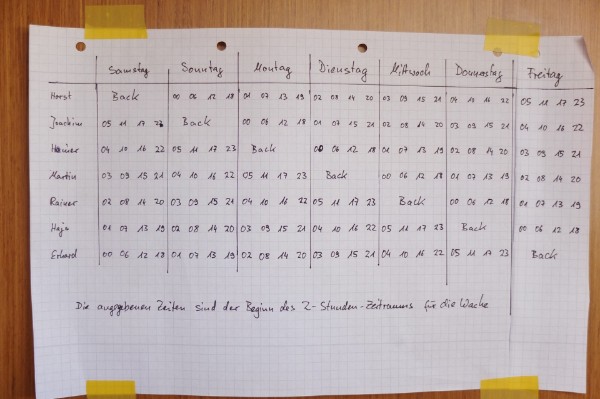 Samstag Sonntag Montag Dienstag Mittwoch Donnerstag Freitag
Horst Back 00 06 12 18 01 07 13 19 02 08 14 20 03 09 15 21 04 10 16 22 05 11 17 23
Joachim 05 11 17 23 Back 00 06 12 18 01 07 15 21 02 08 14 20 03 09 15 21 04 10 16 22
Heiner 04 10 16 22 05 11 17 23 Back 00 06 12 18 01 07 13 19 02 08 14 20 03 09 15 21
Martin 03 09 15 21 04 10 16 22 05 11 17 23 Back 00 06 12 18 01 07 13 19 02 08 14 20
Rainer 02 08 14 20 03 09 15 21 04 10 16 22 05 11 17 23 Back 00 06 12 18 01 07 13 19
Hajo 01 07 13 19 02 08 14 20 03 09 15 21 04 10 16 22 05 11 17 23 Back 00 06 12 18
Erhard 00 06 12 18 01 07 13 19 02 08 14 20 03 09 15 21 04 10 16 22 05 11 17 23 Back
Die angegebenen Zeiten sind der Beginn des 2-Stunden-Zeitraums für die Wache